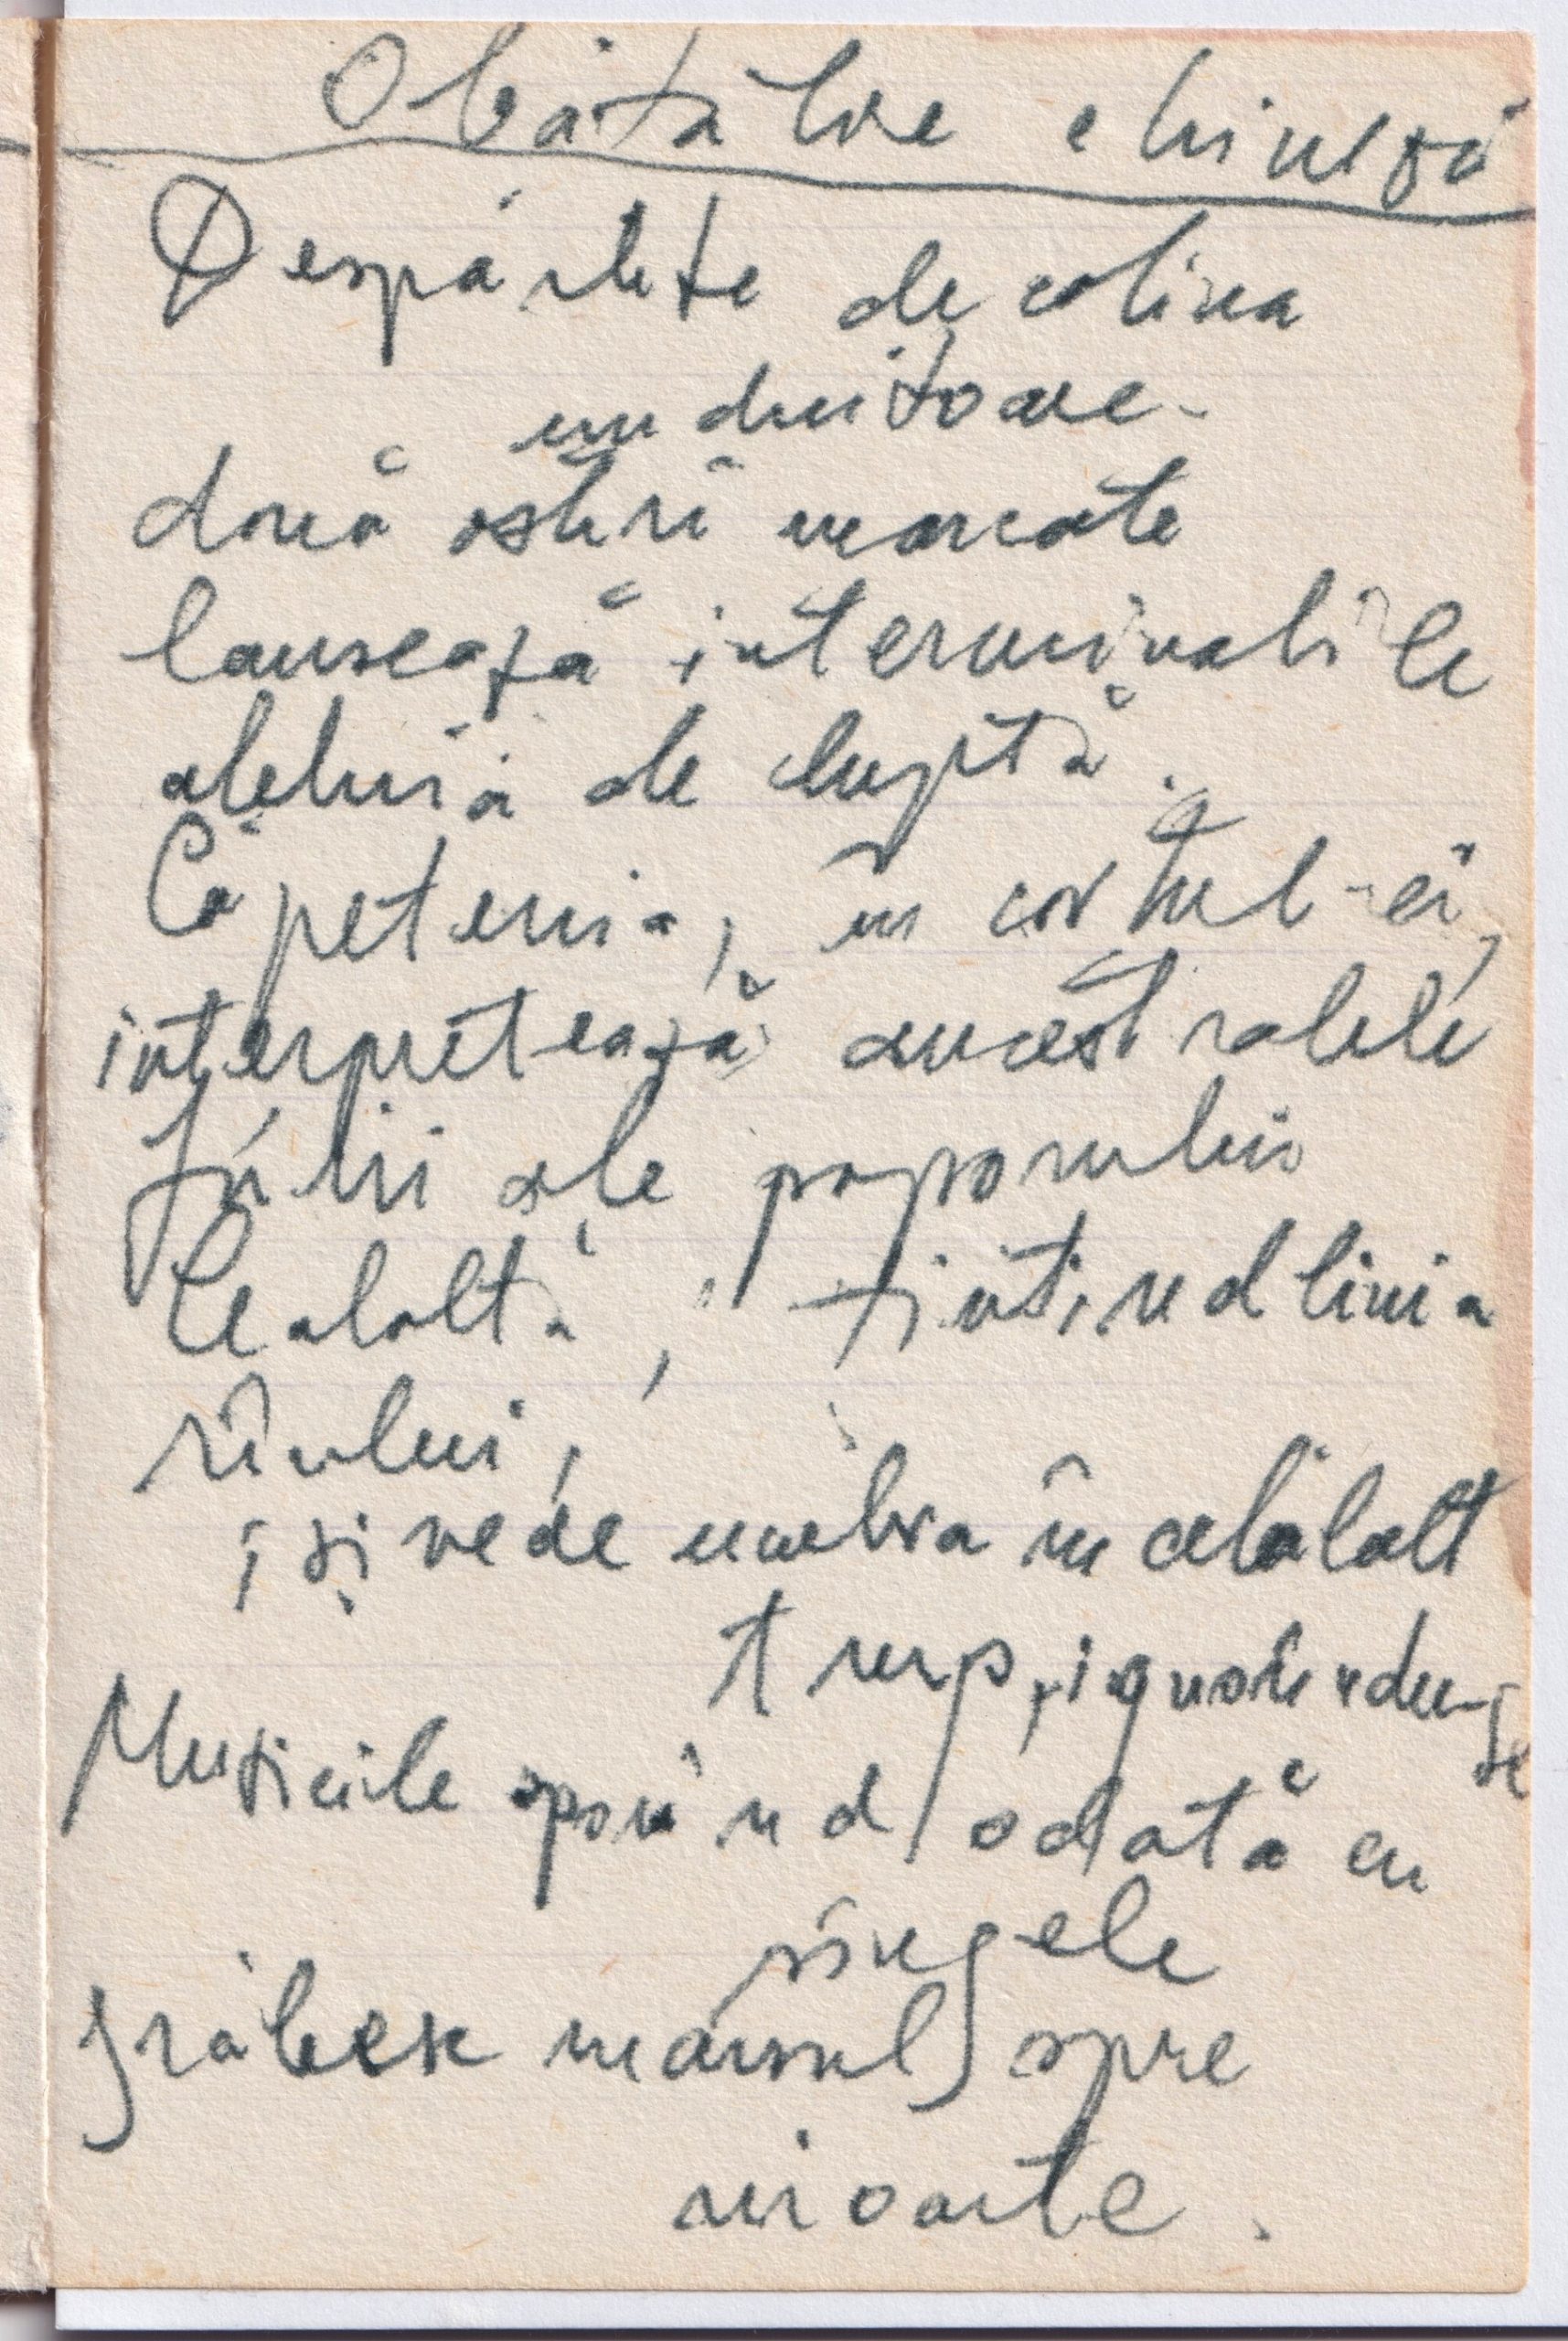 O bătălie chineză
Despărțite de colina
unduitoare
două oștiri marcate
lansează interminabile
aleluia de luptă.
Căpetenia, în cortul-ei,
interpretează ancestralele
júlii ale poporului
Cealaltă, țintind linia
rîului,
își vede umbra în celălalt
trup, ignorîndu-se
Muzicile apunînd odată cu
sîngele
grăbesc marșul spre
moarte.